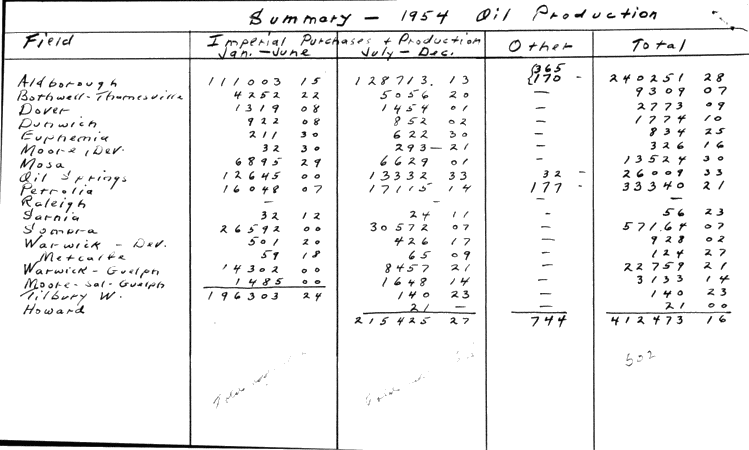 Summary — 1954 Oil Production
Field Imperial Purchases + Production Other Total
Jan. - June July - Dec.
{365
Aldborough 111003 15 128713. 13 {170 - 240251 28
Bothwell-Thamesville 4252 22 5056 20 — 9309 07
Dover 1319 08 1454 01 — 2773 09
Dunwich 922 08 852 02 — 1774 10
Euphemia 211 30 622 30 - 834 25
Moore, Dev. 32 30 293 — 21 — 326 16
Mosa 6895 29 6629 01 - 13524 30
Oil Springs 12645 00 13332 33 32 - 26009 33
Petrolia 16048 07 17115 14 177 - 33340 21
Raleigh - — — —
Sarnia 32 12 24 11 - 56 23
Sombra 26592 00 30572 07 - 571.64 07
Warwick - Dev. 501 20 426 17 — 928 02
Metcalfe 59 18 65 09 — 124 27
Warwick - Guelph 14302 00 8457 21 — 22759 21
Moore-Sal-Guelph 1485 00 1648 14 — 3133 14
Tilbury W. 196303 24 140 23 — 140 23
Howard 21 — — 21 00
215425 27 744 412473 16
502